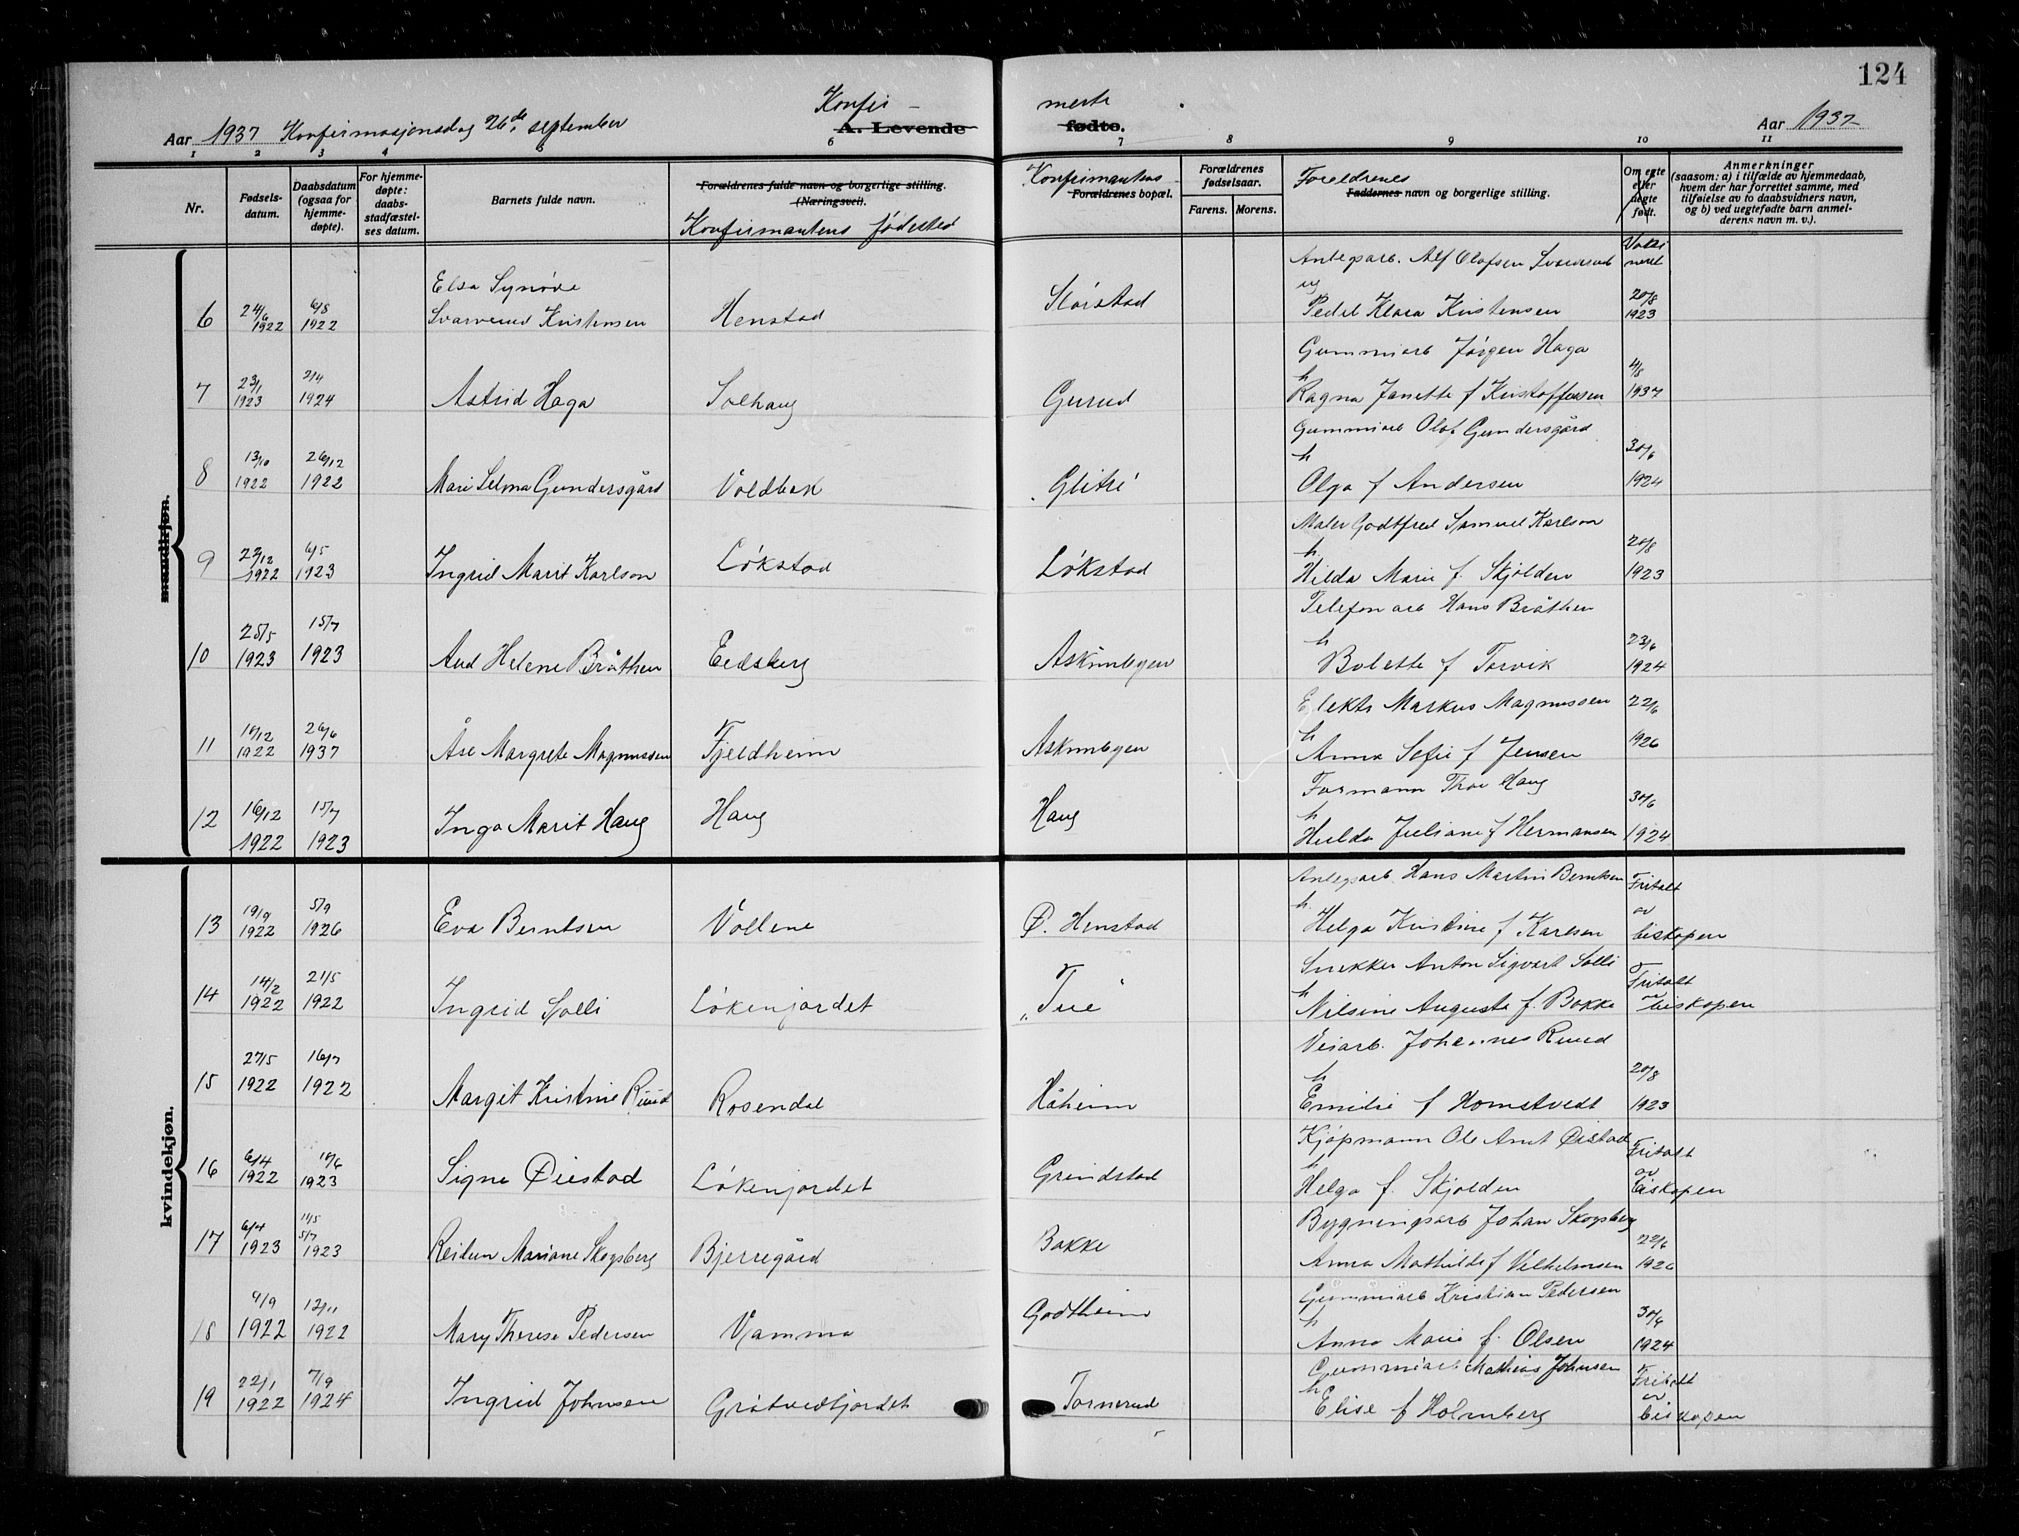 124
Konfir - merte
Aar 1937 Konfirmasjonsdag 26de september A. Levende fødte. Aar 1937
1 2 3 4 5 6 7 8 9 10 11
Nr.
Fødsels-
datum.
Daabsdatum
(ogsaa for
hjemme-
døpte).
For hjemme-
døpte:
daabs-
stadfæstel-
ses datum.
Barnets fulde navn.
Forældrenes fulde navn og borgerlige stilling.
(Næringsvei).
Konfirmantens fødested
Konfirmantens
Forældrenes bopæl.
Forældrenes
fødselsaar.
Farens. Morens.
Foreldrenes
Faddernes navn og borgerlige stilling.
Om egte
eller
uegte
født.
Anmerkninger
(saasom: a) i tilfælde av hjemmedaab,
hvem der har forrettet samme, med
tilføielse av to daabsvidners navn,
og b) ved uegtefødte barn anmel-
derens navn m. v.).
mandkjøn.
Elsa Synøve Anlegsarb. Alf Olafsen Svarverud Vaksi
neret
6 24/6 1922 6/8 1922 Svarverud Kristensen Henstad Slorstad og
Klara Kristensen 20/8 1923
Gummiarb Jørgen Haga
7 23/1 1923 2/4 1924 Astrid Haga Solhaug Gurud h
Ragna Janette f Kristoffersen 4/8 1937
Gummiarb Olof Gundersgård
8 13/10 1922 26/12 1922 Mari Selma Gundersgård Voldbak Glitre h
Olga f Andersen 30/6 1924
Maler Godtfred Samuel Karlson
9 22/12 1922 6/5 1923 Ingrid Marit Karlson Løkstad Løkstad h
Hilda Marie f. Skjolden 20/8 1923
Telefonarb Hans Bråthen
10 25/5 1923 15/7 1923 Aud Helene Bråthen Eidsberg Askimbyen h
Bolette f Torvik 23/6 1924
Elektr Markus Magnussen
11 15/12 1922 26/6 1937 Åse Margrete Magnussen Fjeldheim Askimbyen h
Anna Sofie f Jensen 22/6 1926
Formann Thor Haug
12 16/12 1922 15/7 1923 Inga Marit Haug Haug Haug h
Hulda Juliane f Hermansen 30/6 1924
kvindekjøn.
Anlegsarb. Hans Martin Berntsen
13 19/9 1922 5/9 1926 Eva Berntsen Vollene Ø. Henstad h
Helga Kristine f Karlsen Fritatt
av
biskopen
Snekker Anton Sigvart Solli
14 14/2 1922 21/5 1922 Ingrid Solli Løkenjordet "Tue" h
Nilsine Auguste f. Bakke Fritatt
av biskopen
Veiarb. Johannes Ruud
15 27/5 1922 16/7 1922 Margit Kristine Ruud Rosendal Håheim h
Emilie f Homstvedt 20/8 1923
Kjøpmann Ole Arnt Øistad
16 6/4 1922 10/6 1923 Signe Øiestad Løkenjordet Grindstad h
Helga f. Skjolden Fritatt
av
biskopen
Bygningsarb Johan Skogsberg
17 6/4 1923 11/5 5/7 1923 Reidun Mariane Skogsberg Bjerregård Bakke
Anna Mathilde f Vilhelmsen 22/6 1926
Gummiarb Kristian Pedersen
18 9/9 1922 12/11 1922 Mary Therese Pedersen Vamma Godtheim h
Anna Marie f. Olsen 30/6 1924
Gummiarb Mathias Johnsen
19 22/1 1922 7/9 1924 Ingrid Johnsen Gråtvedtjordet Tornerud h
Elise f Holmberg Fritatt
av
biskopen